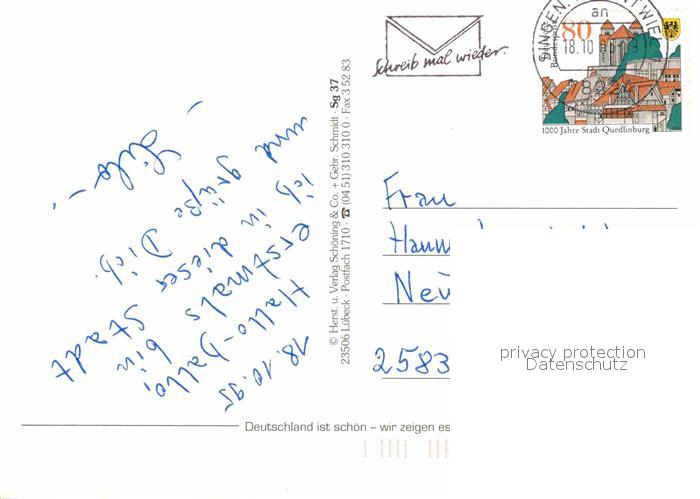 Schreib mal wieder.
SINGEN
an
18.10.95
80
1000 Jahre Stadt Quedlinburg
18.10.95
Hallo
bin
erstmals
in dieser
Stadt
und
ich grüße
Dich.
© Herst. u. Verlag Schöning & Co. + Gebr. Schmidt · Sg 37
23506 Lübeck · Postfach 1710 · ☎ (04 51) 310 310 0 · Fax 3 52 83
Frau
2583
privacy protection
Datenschutz
Deutschland ist schön – wir zeigen es